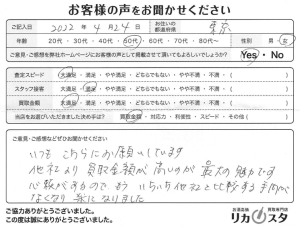 お客様の声をお聞かせください
ご記入日 2022年4月24日 お住いの都道府県 東京
年齢 20代・30代・40代・50代・60代・70代・80代~ 性別 男・女
ご意見・ご感想を弊社ホームページにお客様の声として掲載させて頂いてもよろしいでしょうか? Yes・No
査定スピード 大満足・満足・やや満足・どちらでもない・やや不満・不満
スタッフ接客 大満足・満足・やや満足・どちらでもない・やや不満・不満
買取金額 大満足・満足・やや満足・どちらでもない・やや不満・不満
当店をお選びいただきました決め手は? 買取金額・対応力・利便性・スピード・その他( )
ご意見・ご感想などどぜひお聞かせください。
いつもこちらにお願いしています
他社より買取金額が高いのが最大の魅力です
心頼があるので、もういちいち他社と比較する手間が
なくなり楽になりました
ご協力ありがとうございました。
この度は誠にありがとうございました。
お酒高価買取専門店
リカスタ